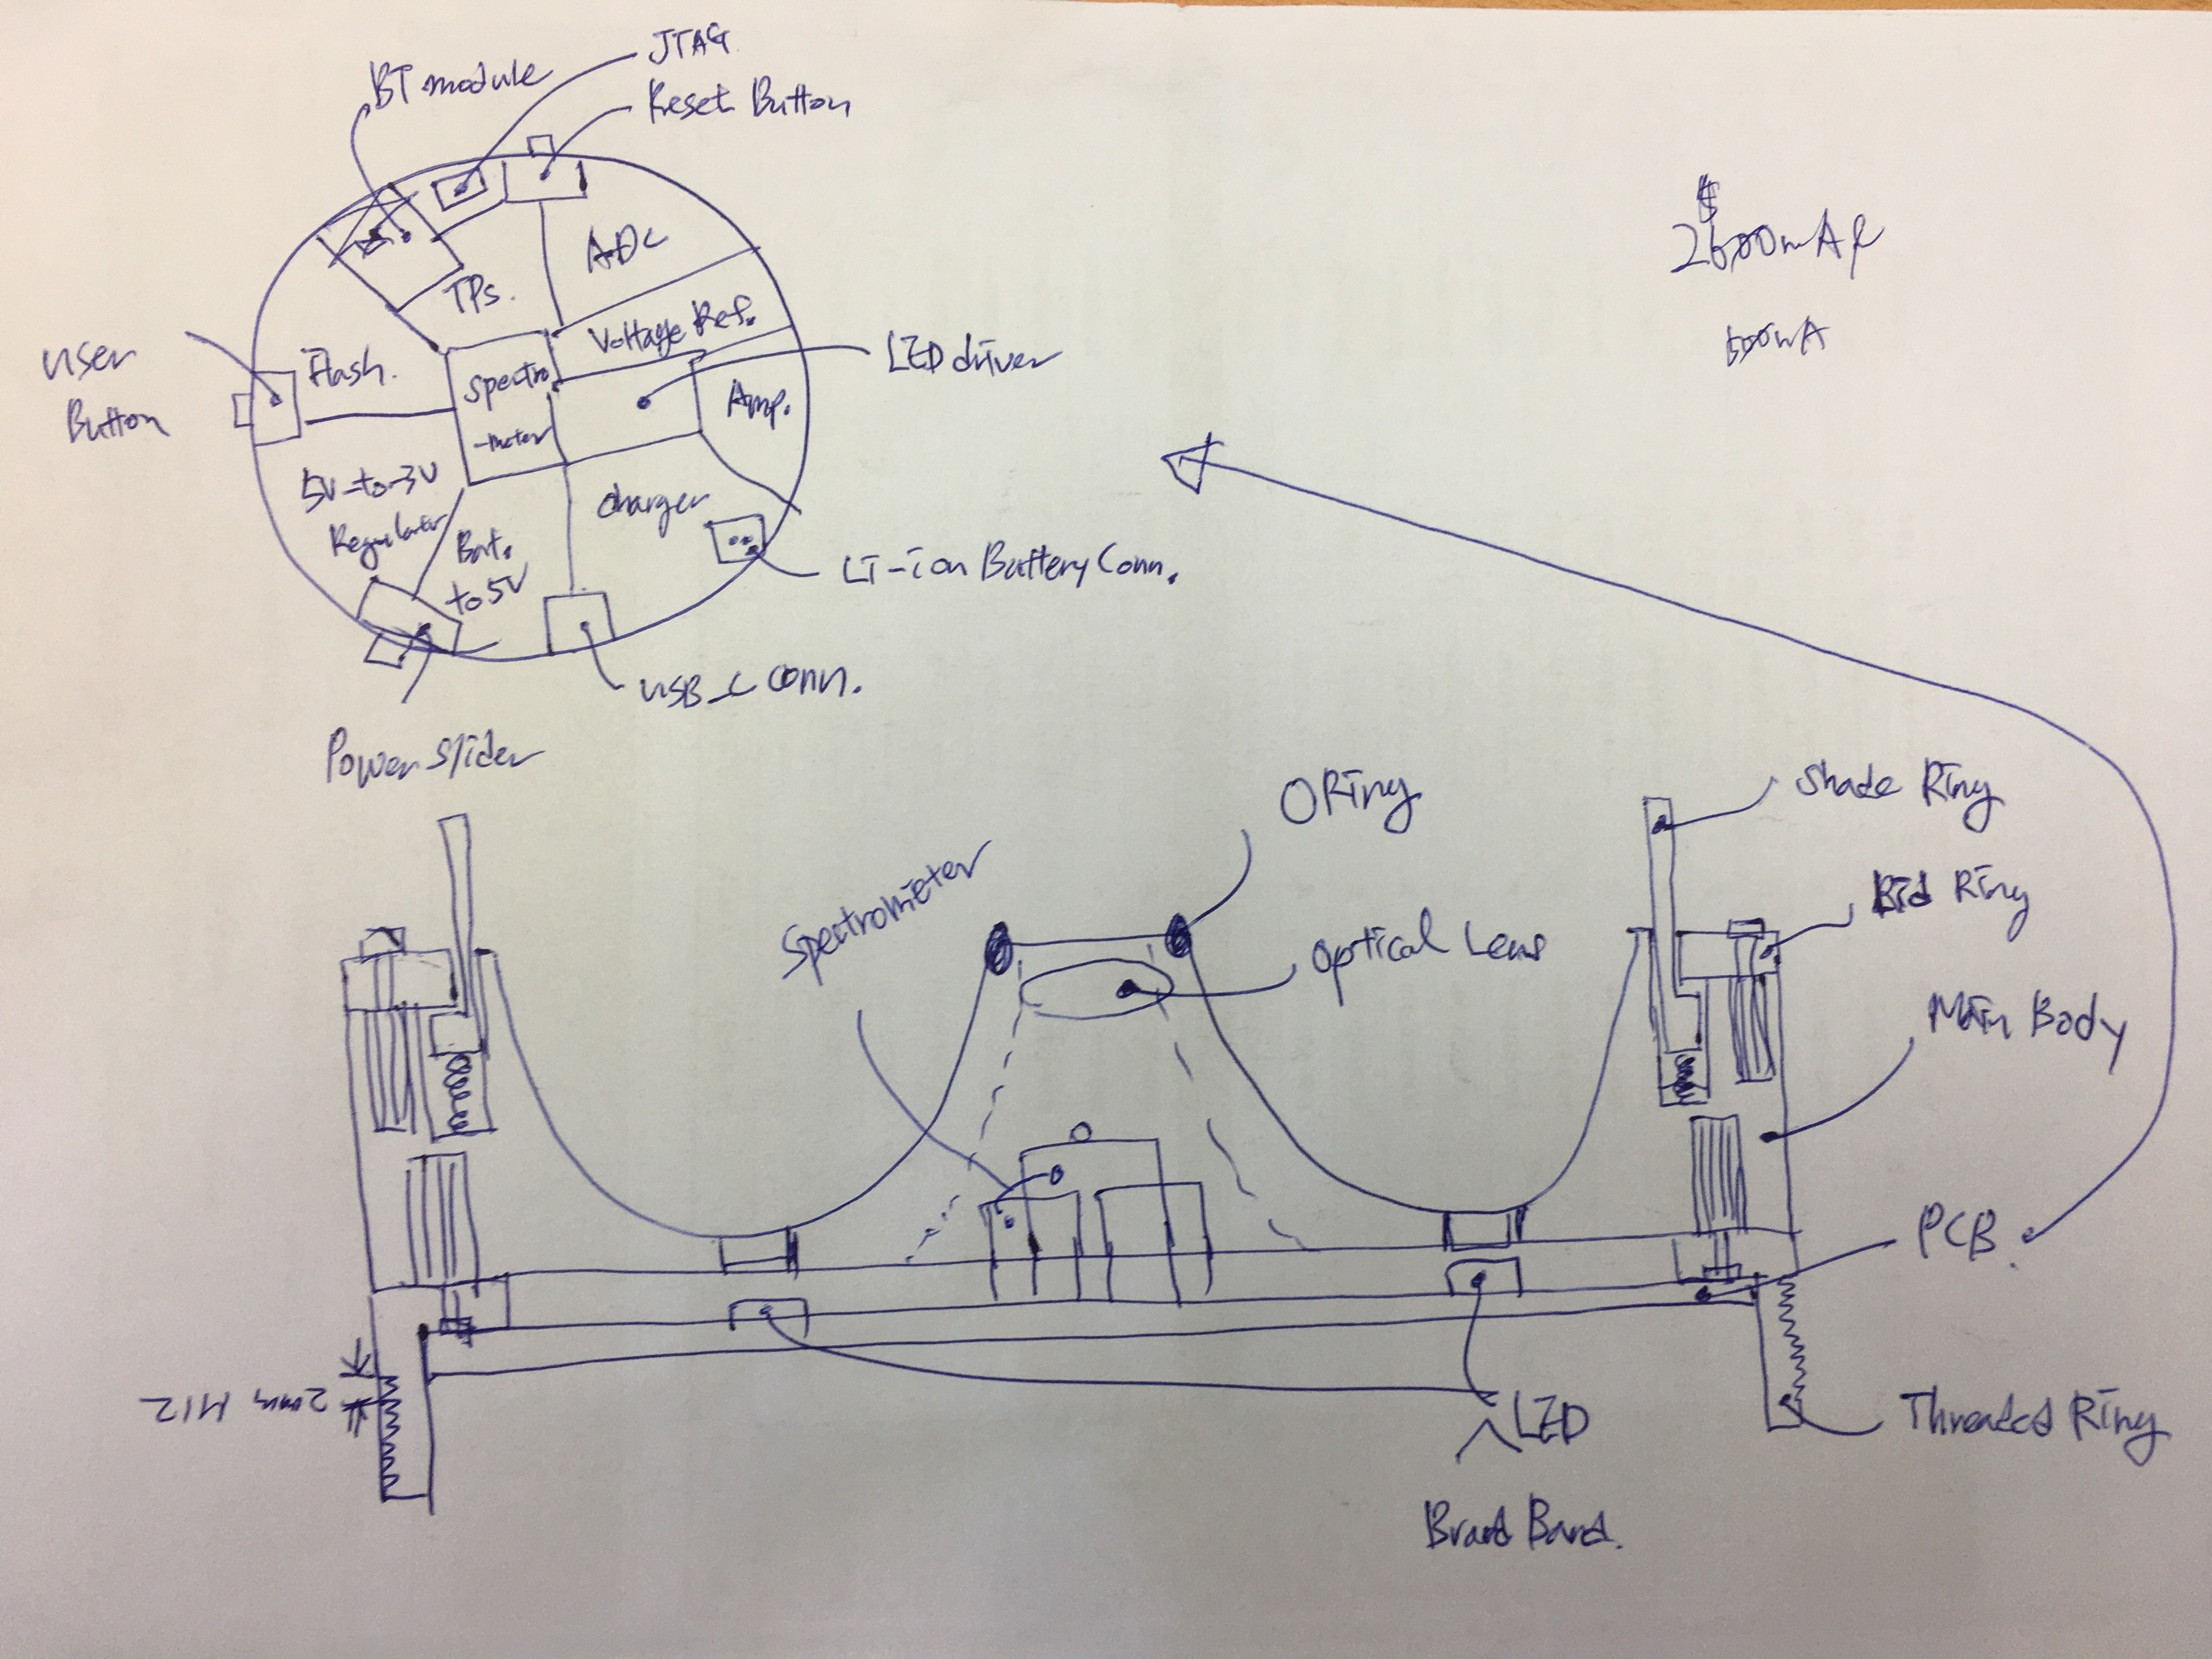 BT module
JTAG
Reset Button
ADC
TPs.
Voltage Ref.
LED driver
User
Button
Flash.
Spectro
-meter
Amp.
5V-to-3V
Regulator
Bat.
to 5V
Charger
Li-ion Battery Conn.
USB_C Conn.
Power Slider
mA
O Ring
Shade Ring
Spectrometer
Optical Lens
Ring
Main Body
PCB
2mm
LED
Threaded Ring